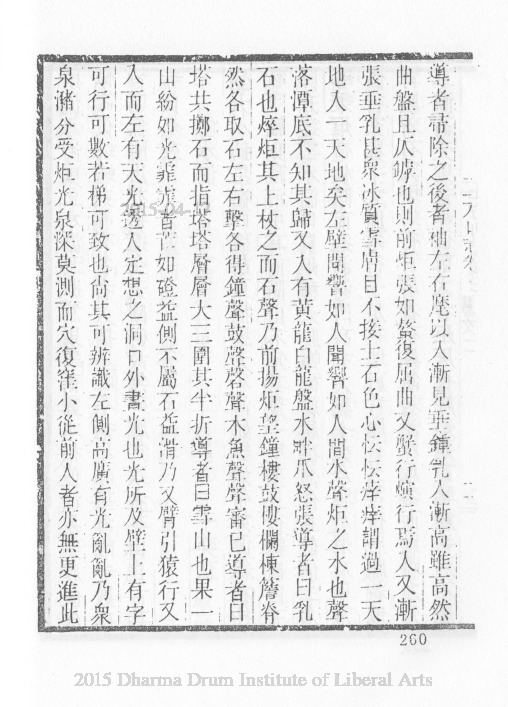 導者帚除之後者袖左右麾以入漸見垂鐘乳入漸高雖高然
曲盤且仄罅也則前炬張如鰲復屈曲又蟹行蠙行焉入又漸
張垂乳甚衆冰質雪膚目不接土石色心怯怯痒痒謂過一天
地入一天地矣左壁聞響如人聞響如人間水聲炬之水也聲
落潭底不知其歸又入有黃龍白龍盤水畔爪怒張導者曰乳
石也焠炬其上杖之而石聲乃前揚炬望鐘樓鼓樓欄棟簷脊
然各取石左右擊各得鐘聲鼓聲磬聲木魚聲聲審已導者曰
塔共擲石而指塔塔層層大三圍其半折導者曰雪山也果一
山紛如光霏霏者
如磴益側不屬石益滑乃又臂引猿行又
入而左有天光透入定想之洞口外晝光也光所及壁上有字
可行可數若梯可致也尚其可辨識左側高廣有光亂亂乃衆
泉瀦分受炬光泉深莫測而穴復窪小從前人者亦無更進此
260
2015 Dharma Drum Institute of Liberal Arts